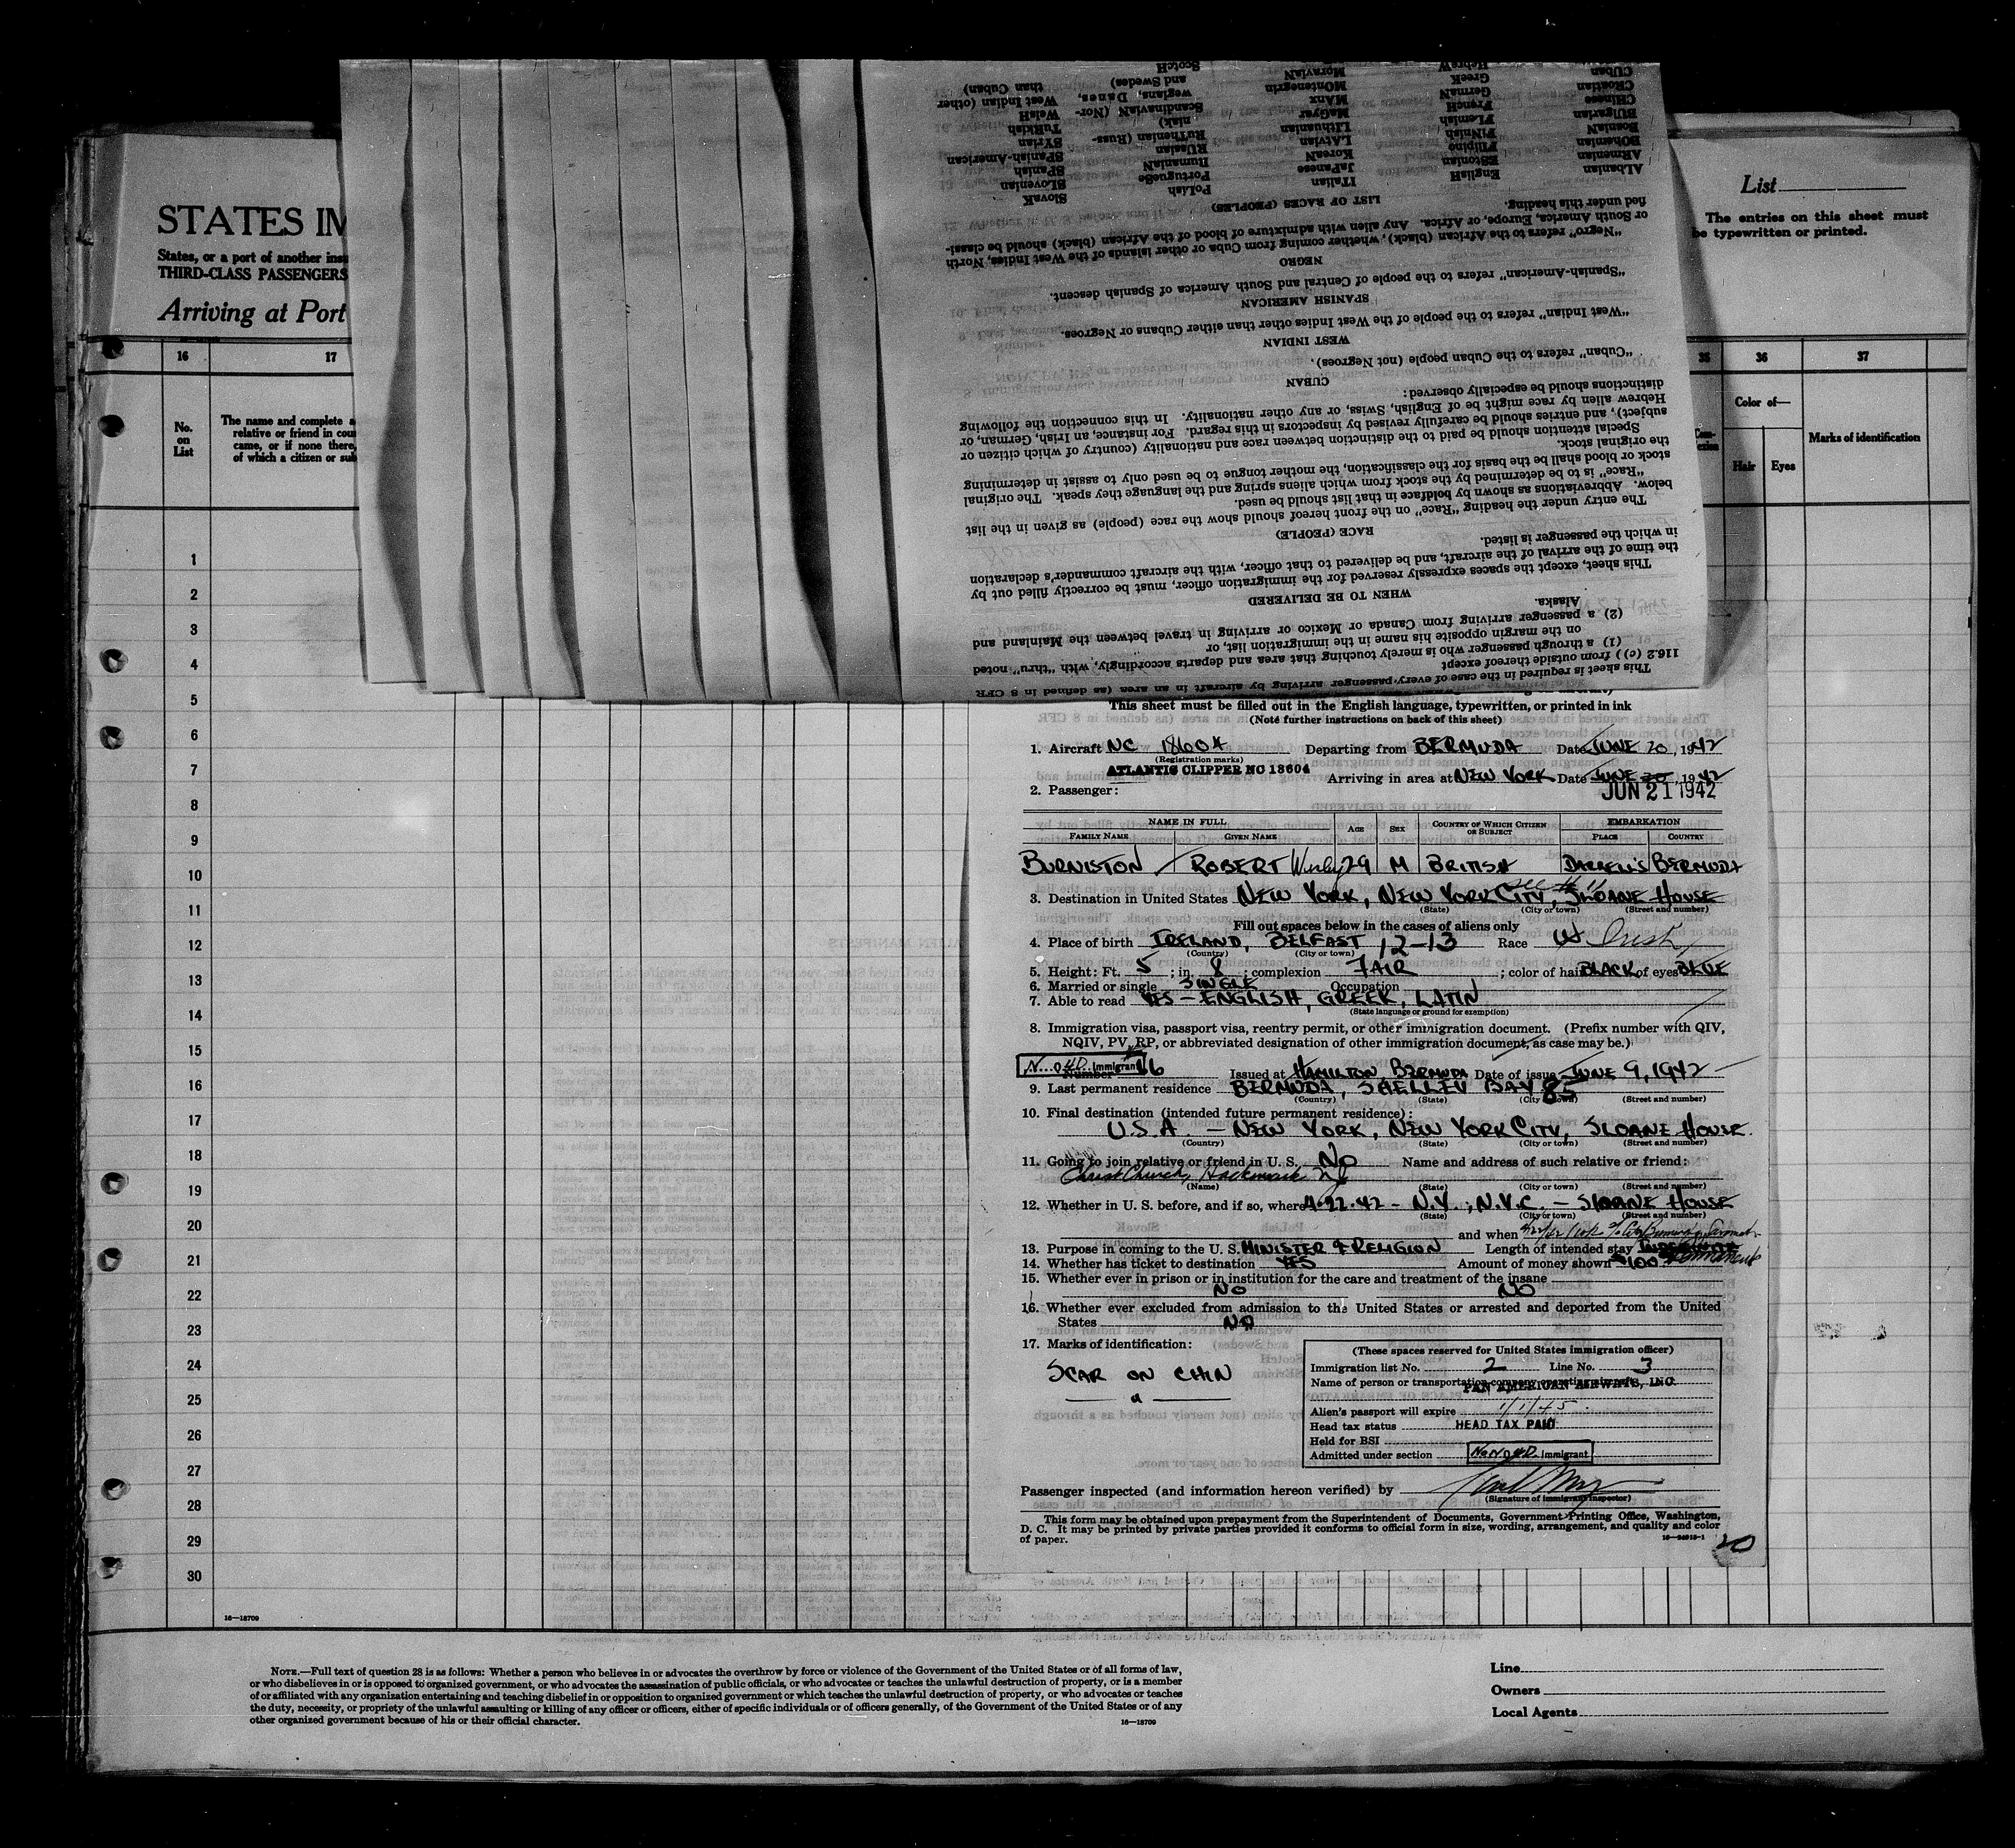 STATES IM
States, or a part of another ins
THIRD-CLASS PASSENGERS
Arriving at Port
List
The entries on this sheet must
be typewritten or printed.
16
17
35
36
37
No.
on
List
The name and complete a
relative or friend in cou
came, or if none there,
of which a citizen or sub
Color of—
Hair
Eyes
Marks of identification
1
2
3
4
5
6
7
8
9
10
11
12
13
14
15
16
17
18
19
20
21
22
23
24
25
26
27
28
29
30
16—18709
This sheet is required in the case of every passenger arriving by aircraft in an area (as defined in 8 CFR
116.2 (c)) from outside thereof except
(1) a through passenger who is merely touching that area and departs accordingly, with "thru" noted
on the margin opposite his name in the immigration list, or
(2) a passenger arriving from Canada or Mexico or arriving in travel between the Mainland and
Alaska.
WHEN TO BE DELIVERED
This sheet, except the spaces expressly reserved for the immigration officer, must be correctly filled out by
the time of the arrival of the aircraft, and be delivered to that officer, with the aircraft commander's declaration
in which the passenger is listed.
RACE (PEOPLE)
The entry under the heading "Race" on the front hereof should show the race (people) as given in the list
below. Abbreviations as shown by boldface in that list should be used.
"Race" is to be determined by the stock from which aliens spring and the language they speak. The original
stock or blood shall be the basis for the classification, the mother tongue to be used only to assist in determining
the original stock.
Special attention should be paid to the distinction between race and nationality (country of which citizen or
subject), and entries should be carefully revised by inspectors in this regard. For instance, an Irish, German, or
Hebrew alien by race might be of English, Swiss, or any other nationality. In this connection the following
distinctions should be especially observed:
CUBAN
"Cuban" refers to the Cuban people (not Negroes).
WEST INDIAN
"West Indian" refers to the people of the West Indies other than either Cubans or Negroes.
SPANISH AMERICAN
"Spanish-American" refers to the people of Central and South America of Spanish descent.
NEGRO
"Negro" refers to the African (black), whether coming from Cuba or other islands of the West Indies, North
or South America, Europe, or Africa. Any alien with admixture of blood of the African (black) should be classi-
fied under this heading.
LIST OF RACES (PEOPLES)
ALbanian EnglisH ITalian PoLish SlovaK
ARmenian EStonian JaPanese PortugueSe SLovenian
BOhemian FIlipino KoreaN RumaniaN SPanish
BosniaN FiNnish LAtvian RUssian SPanish-American
BUlgarian FLemish LIthuanian RuThenian (Russ- SYrian
CHinese FrencH MaGyar niak) TuRkish
CRoatian GermaN MAnx ScandinaviaN (Nor- WelsH
CUban GreeK MOntenegrin wegians, Danes, West Indian (other
HebreW MoraviaN and Swedes) than Cuban)
ScotcH
This sheet must be filled out in the English language, typewritten, or printed in ink
(Note further instructions on back of this sheet)
1. Aircraft NC 18604 Departing from BERMUDA Date JUNE 20, 1942
(Registration marks)
ATLANTIC CLIPPER NC 18604 Arriving in area at NEW YORK Date JUNE 20, 1942
2. Passenger: JUN 21 1942
NAME IN FULL AGE SEX COUNTRY OF WHICH CITIZEN OR SUBJECT EMBARKATION
FAMILY NAME GIVEN NAME PLACE COUNTRY
BURNISTON ROBERT 29 M BRITISH DARRELL'S BERMUDA
see # 11
3. Destination in United States NEW YORK, NEW YORK CITY, SLOANE HOUSE
(State) (City or town) (Street and number)
Fill out spaces below in the cases of aliens only
4. Place of birth IRELAND, BELFAST 12-13 Race W Irish
(Country) (City or town)
5. Height: Ft. 5; in. 8; complexion FAIR; color of hair BLACK of eyes BLUE
6. Married or single SINGLE Occupation
7. Able to read YES - ENGLISH, GREEK, LATIN
(State language or ground for exemption)
8. Immigration visa, passport visa, reentry permit, or other immigration document. (Prefix number with QIV,
NQIV, PV, RP, or abbreviated designation of other immigration document, as case may be.)
Number 16 Issued at HAMILTON, BERMUDA Date of issue JUNE 9, 1942
9. Last permanent residence BERMUDA, SHELLEY BAY 85
(Country) (State) (City or town) (Street and number)
10. Final destination (intended future permanent residence):
U.S.A. - NEW YORK, NEW YORK CITY, SLOANE HOUSE.
(Country) (State) (City or town) (Street and number)
11. Going to join relative or friend in U. S. NO Name and address of such relative or friend:
Christ Church, Hackensack NJ
(Name) (State) (City or town) (Street and number)
12. Whether in U. S. before, and if so, where 4.22.42 - N.Y.; N.Y.C. - SLOANE HOUSE
(State) (City or town) (Street and number)
and when
13. Purpose in coming to the U. S. MINISTER OF RELIGION Length of intended stay Permanent
14. Whether has ticket to destination YES Amount of money shown $100
15. Whether ever in prison or in institution for the care and treatment of the insane
NO NO
16. Whether ever excluded from admission to the United States or arrested and deported from the United
States NO
17. Marks of identification:
SCAR ON CHIN
(These spaces reserved for United States immigration officer)
Immigration list No. 2 Line No. 3
Name of person or transportation company operating aircraft
PAN AMERICAN AIRWAYS, INC.
Alien's passport will expire 1/1/45
Head tax status HEAD TAX PAID
Held for BSI
Admitted under section Non Q 4D Immigrant
Passenger inspected (and information hereon verified) by
(Signature of immigrant inspector)
This form may be obtained upon prepayment from the Superintendent of Documents, Government Printing Office, Washington,
D. C. It may be printed by private parties provided it conforms to official form in size, wording, arrangement, and quality and color
of paper.
20
NOTE.—Full text of question 28 is as follows: Whether a person who believes in or advocates the overthrow by force or violence of the Government of the United States or of all forms of law,
or who disbelieves in or is opposed to organized government, or who advocates the assassination of public officials, or who advocates or teaches the unlawful destruction of property, or is a member
of or affiliated with any organization entertaining and teaching disbelief in or opposition to organized government or which teaches the unlawful destruction of property, or who advocates or teaches
the duty, necessity, or propriety of the unlawful assaulting or killing of any officer or officers, either of specific individuals or of officers generally, of the Government of the United States or of any
other organized government because of his or their official character.
16—18709
Line
Owners
Local Agents